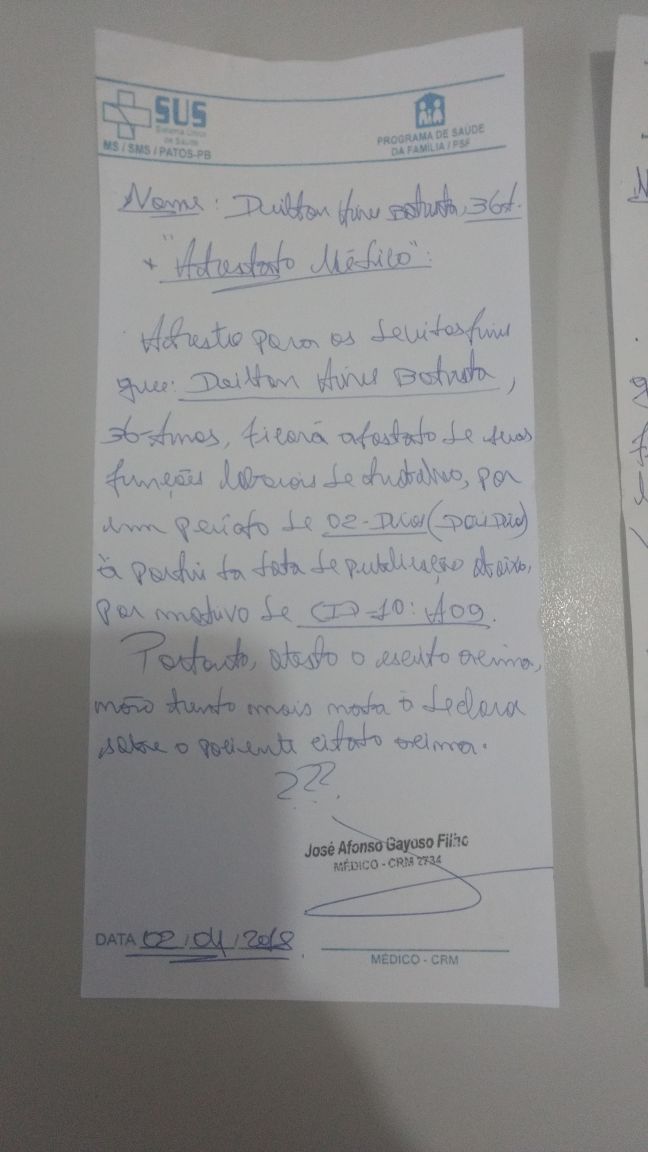 SUS
Sistema Único
de Saúde
MS / SMS / PATOS-PB
PROGRAMA DE SAÚDE
DA FAMÍLIA / PSF
Nome: Deilton Batista, 36A.
"Atestado Médico":
Atesto para os
que: Deilton Batista,
36-Anos, ficará afastado de suas
funções laborais de trabalho, por
um período de 02-Dias (Dois Dias)
à partir da data de publicação abaixo,
por motivo de CID-10: A09.
Portanto, atesto o escrito acima,
não tendo mais nada à declarar
sobre o paciente citado acima.
???
José Afonso Gayoso Filho
MÉDICO - CRM 2734
DATA 02/04/2018
MÉDICO - CRM